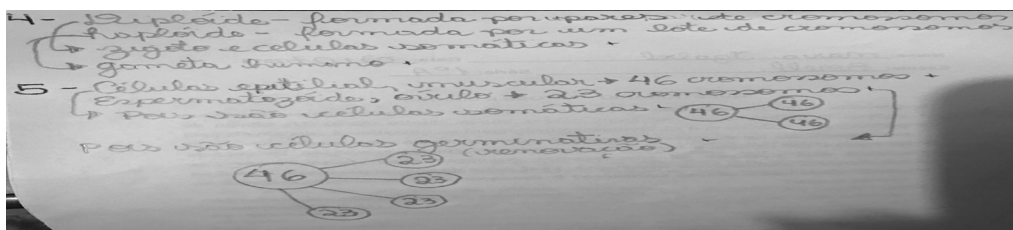 4 - Diplóide - formada por pares de cromossomos
haplóide - formada por um lote de cromossomos
zigoto e celulas somáticas.
gameta humano.
5 - Células epitilial, muscular → 46 cromossomos.
Espermatozóide, óvulo → 23 cromossomos.
Pois são células somáticas. 46 46
46
Pois são células germinativas -
(renovação)
46 23
23
23
23